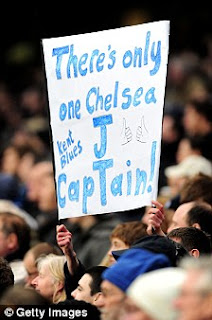 There's only
one Chelsea
Kent
Blues
JT
CapTain!
© Getty Images